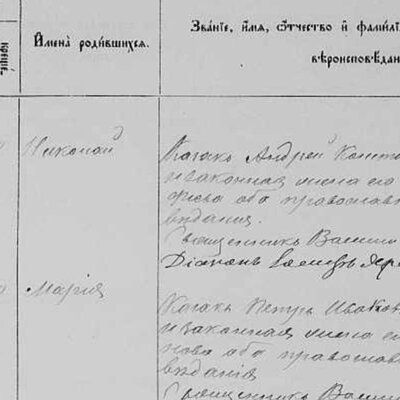 Имена родившихся.
Званіе, имя, отчество и фамилі
вѣроисповѣдан
креще
Николай
Козакъ Андрей Конст
и законная жена его
оба православ
вѣданія.
Священникъ Васили
Діаконъ
Марія
Козакъ Петръ Иваков
и законная жена е
оба православ
вѣданія
Священникъ Васи